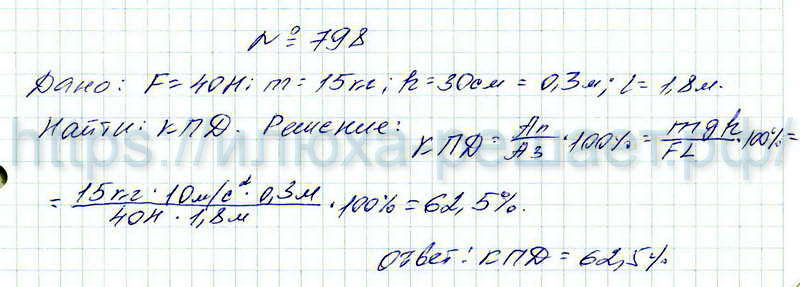 № 798
Дано: F = 40Н; m = 15кг; h = 30см = 0,3м; l = 1,8м.
Найти: КПД. Решение: КПД = Ап/Аз · 100% = mgh/FL · 100% =
= 15кг · 10м/с² · 0,3м / 40Н · 1,8м · 100% = 62,5%.
Ответ: КПД = 62,5%